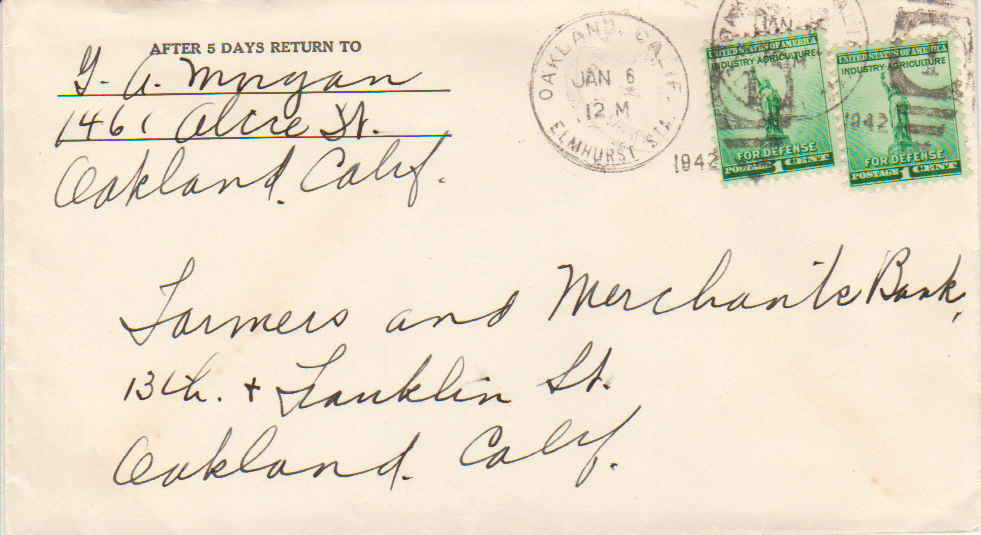 AFTER 5 DAYS RETURN TO
G. A. Morgan
1461 Alice St.
Oakland. Calif.
OAKLAND, CALIF.
JAN 6
12 M
1942
ELMHURST STA.
JAN
UNITED STATES OF AMERICA
INDUSTRY AGRICULTURE
FOR DEFENSE
POSTAGE 1 CENT
UNITED STATES OF AMERICA
INDUSTRY AGRICULTURE
1942
FOR DEFENSE
POSTAGE 1 CENT
Farmers and Merchants Bank,
13th. + Franklin St.
Oakland. Calif.